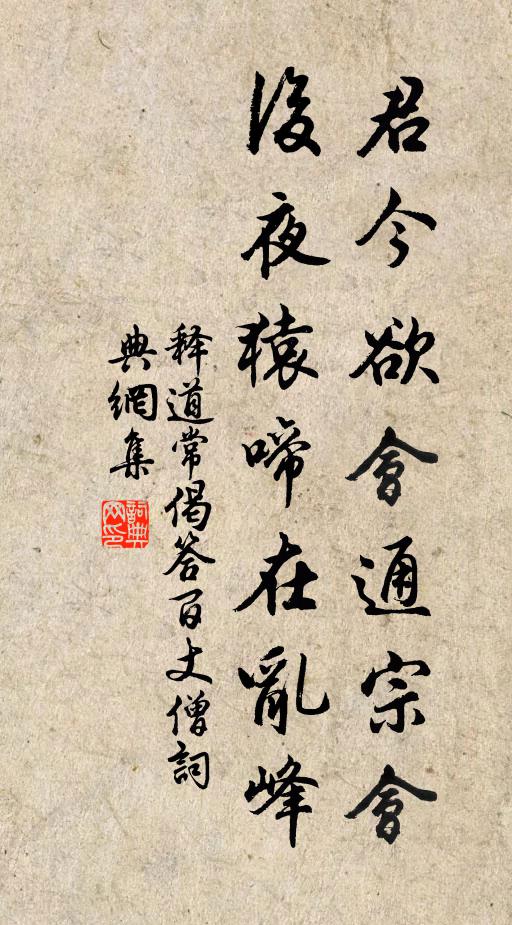 君今欲會通宗會
後夜猿啼在亂峰
释道常偈答百丈僧詞
典網集
詞典網印